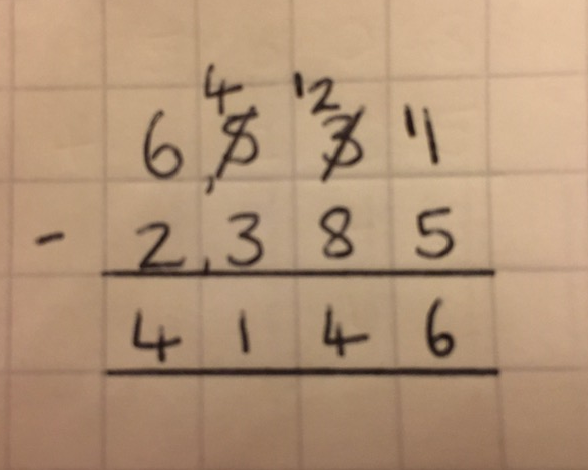 4 12
6,5 3 11
- 2,3 8 5
4 1 4 6